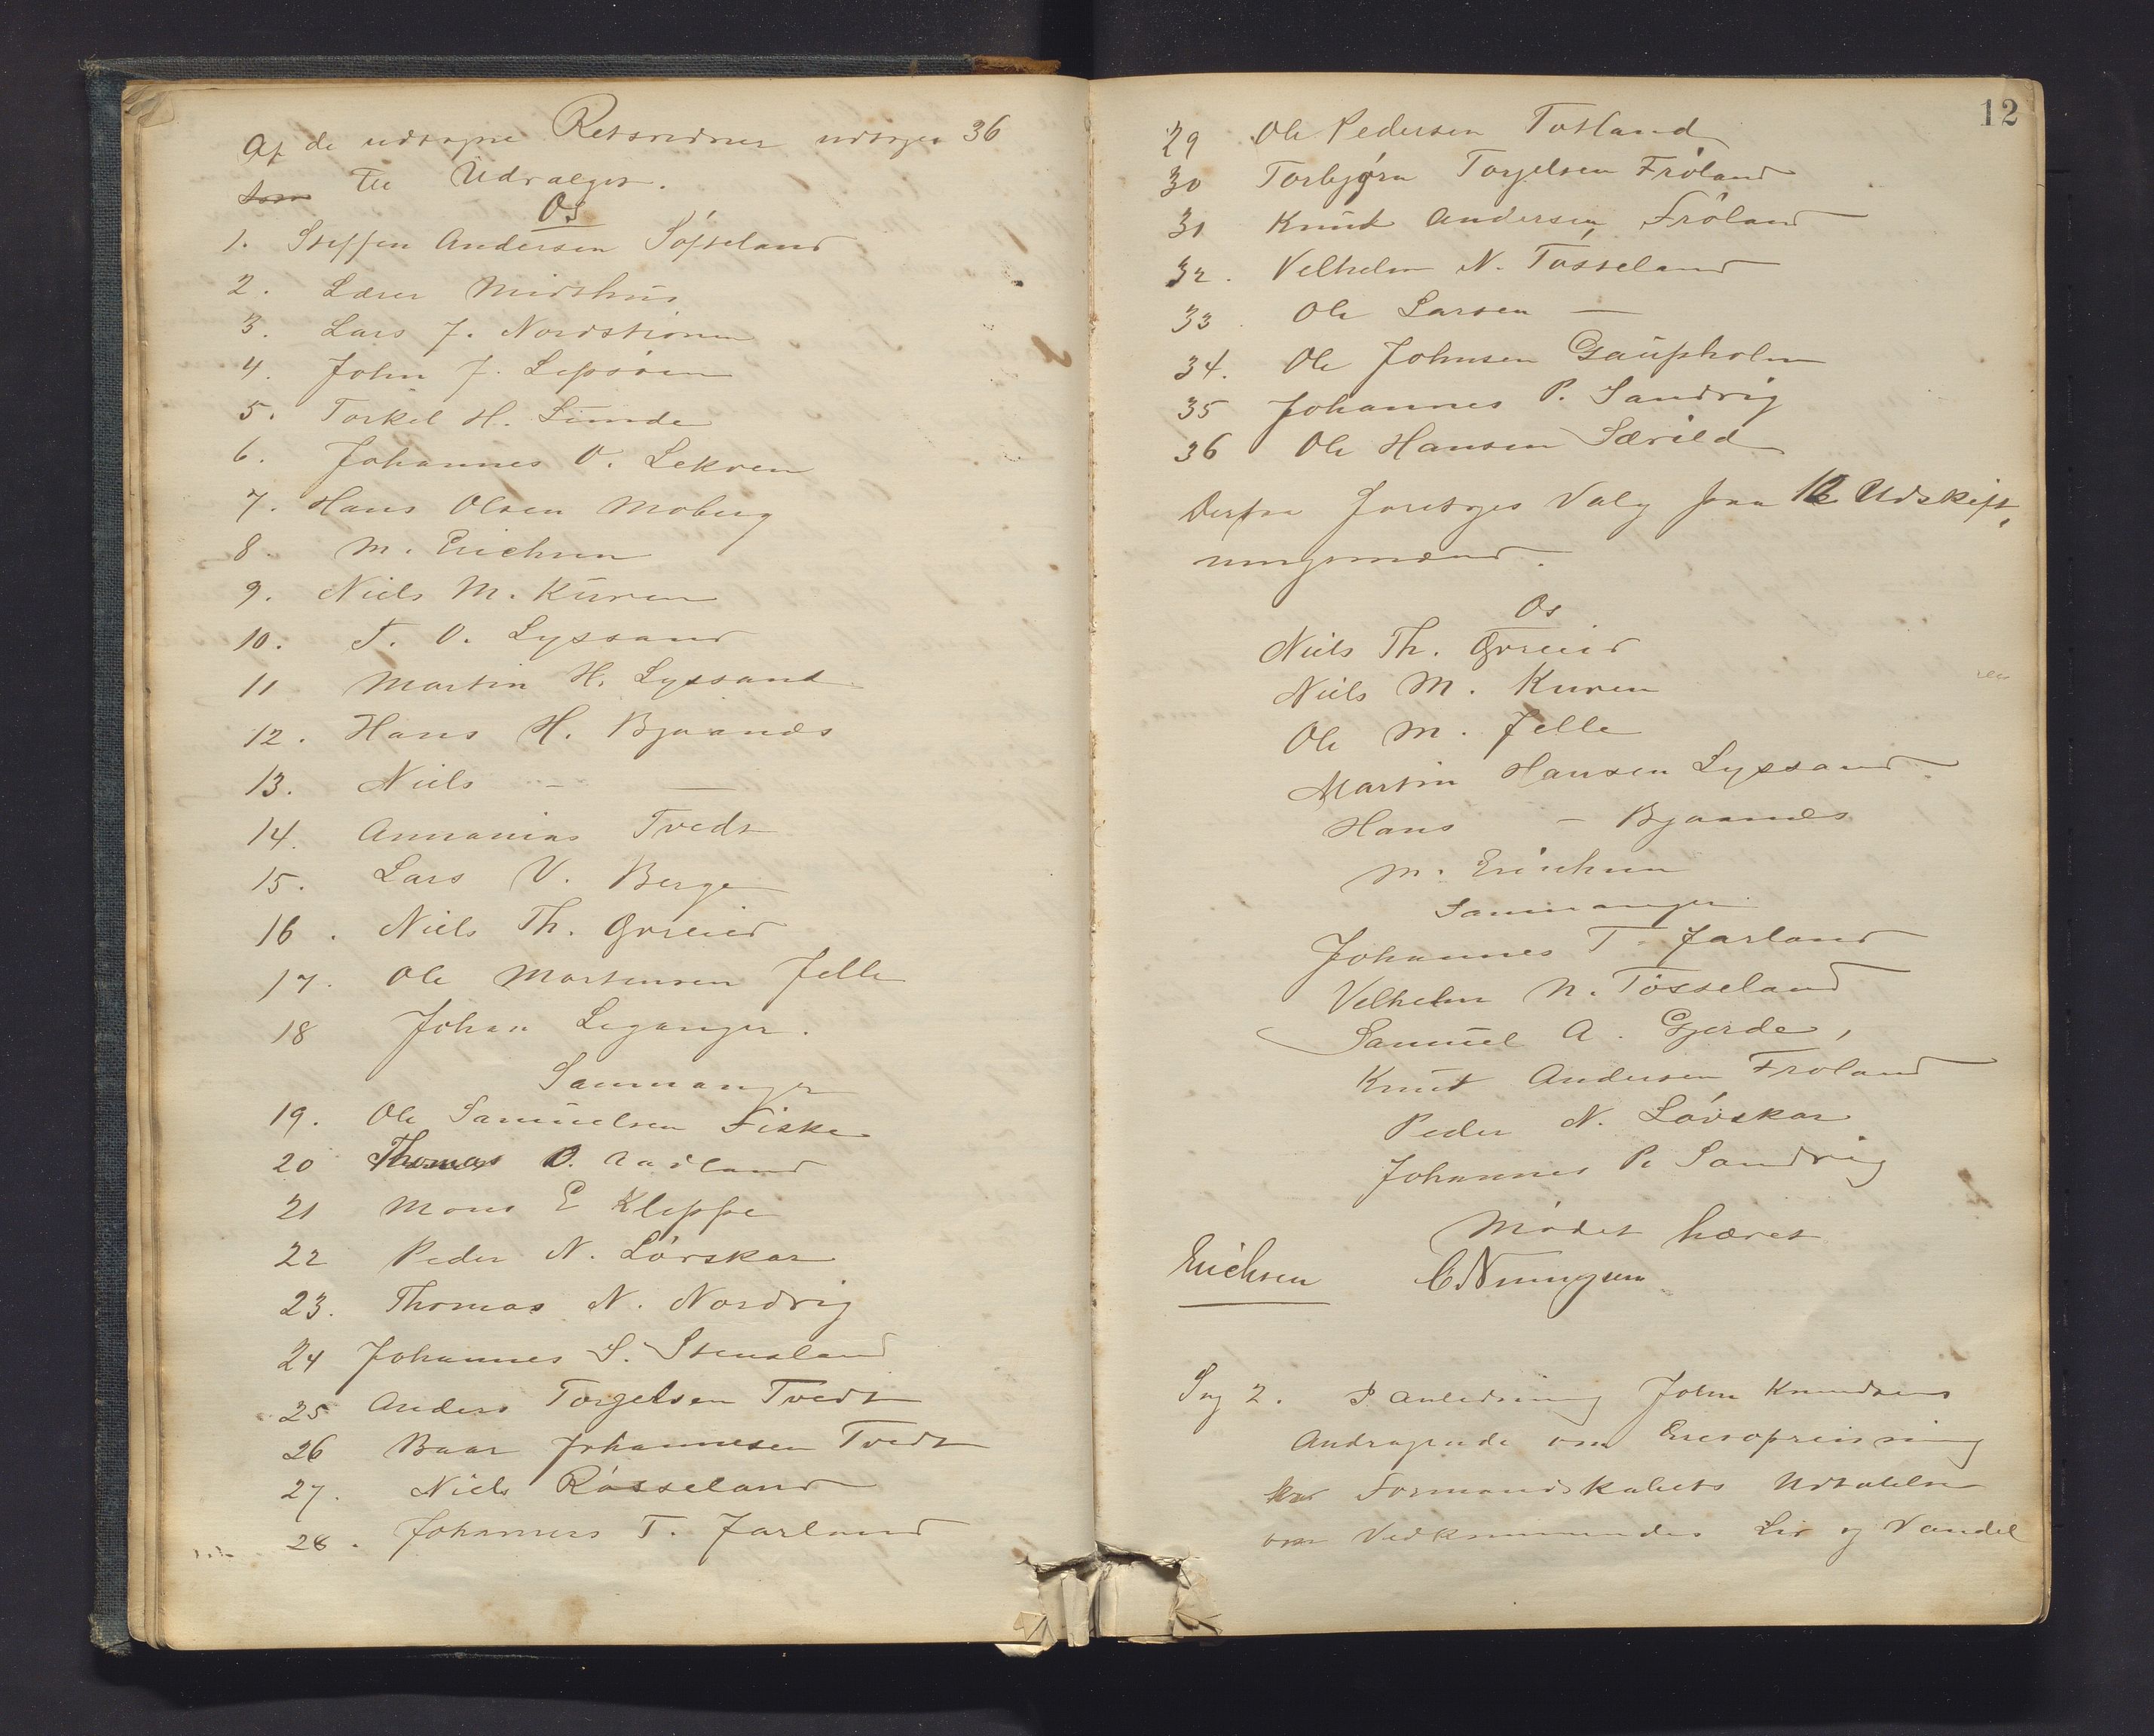 Af de udtagne Retsvidner udtages 36
som til Udvalget.
Os
1. Steffen Andersen Søfteland
2. Lærer Midthus
3. Lars J. Nordstrønen
4. John J. Lepsøen
5. Torkel H. Lunde
6. Johannes O. Lekven
7. Hans Olsen Moberg
8. M. Erichsen
9. Niels M. Kuven
10. T. O. Lyssand
11 Martin H. Lyssand
12. Hans H. Bjaanæs
13. Niels - —
14. Annanias Tvedt
15. Lars V. Berge
16. Niels Th. Øvreeid
17. Ole Martensen Jelle
18 Johan Leganger.
Sammanger
19. Ole Samuelsen Fiske
20 Thomas O. Aadland
21 Mons E Kleppe
22 Peder N. Løvskar
23. Thomas N. Nordvig
24 Johannes S. Stensland
25 Anders Torgelsen Tvedt
26 Baar Johannesen Tvedt
27. Niels Røsseland
28. Johannes T. Jarland
12
29 Ole Pedersen Tosland
30 Torbjørn Torgelsen Frøland
31 Knud Andersen Frøland
32. Velhelm N. Tøsseland
33 Ole Larsen —
34. Ole Johnsen Gaupholm
35 Johannes P. Sandvig
36 Ole Hansen Særvold
Derfra foretoges Valg paa 12 Udskift,
ningsmænd.
Os
Niels Th. Øvreeid
Niels M. Kuven
Ole M. Jelle
Martin Hansen Lyssand
Hans - Bjaanæs
M. Erichsen
Sammanger
Johannes T. Jarland
Velhelm N. Tøsseland
Samuel A. Gjerde,
Knut Andersen Frøland
Peder N. Løvskar
Johannes P. Sandvig
Mødet hævet
Erichsen
Sag 2. I Anledning John Knudsens
Andragende om Æresopreisning
har Formandskabets Udtalelse
om Vedkommendes Liv og Vandel